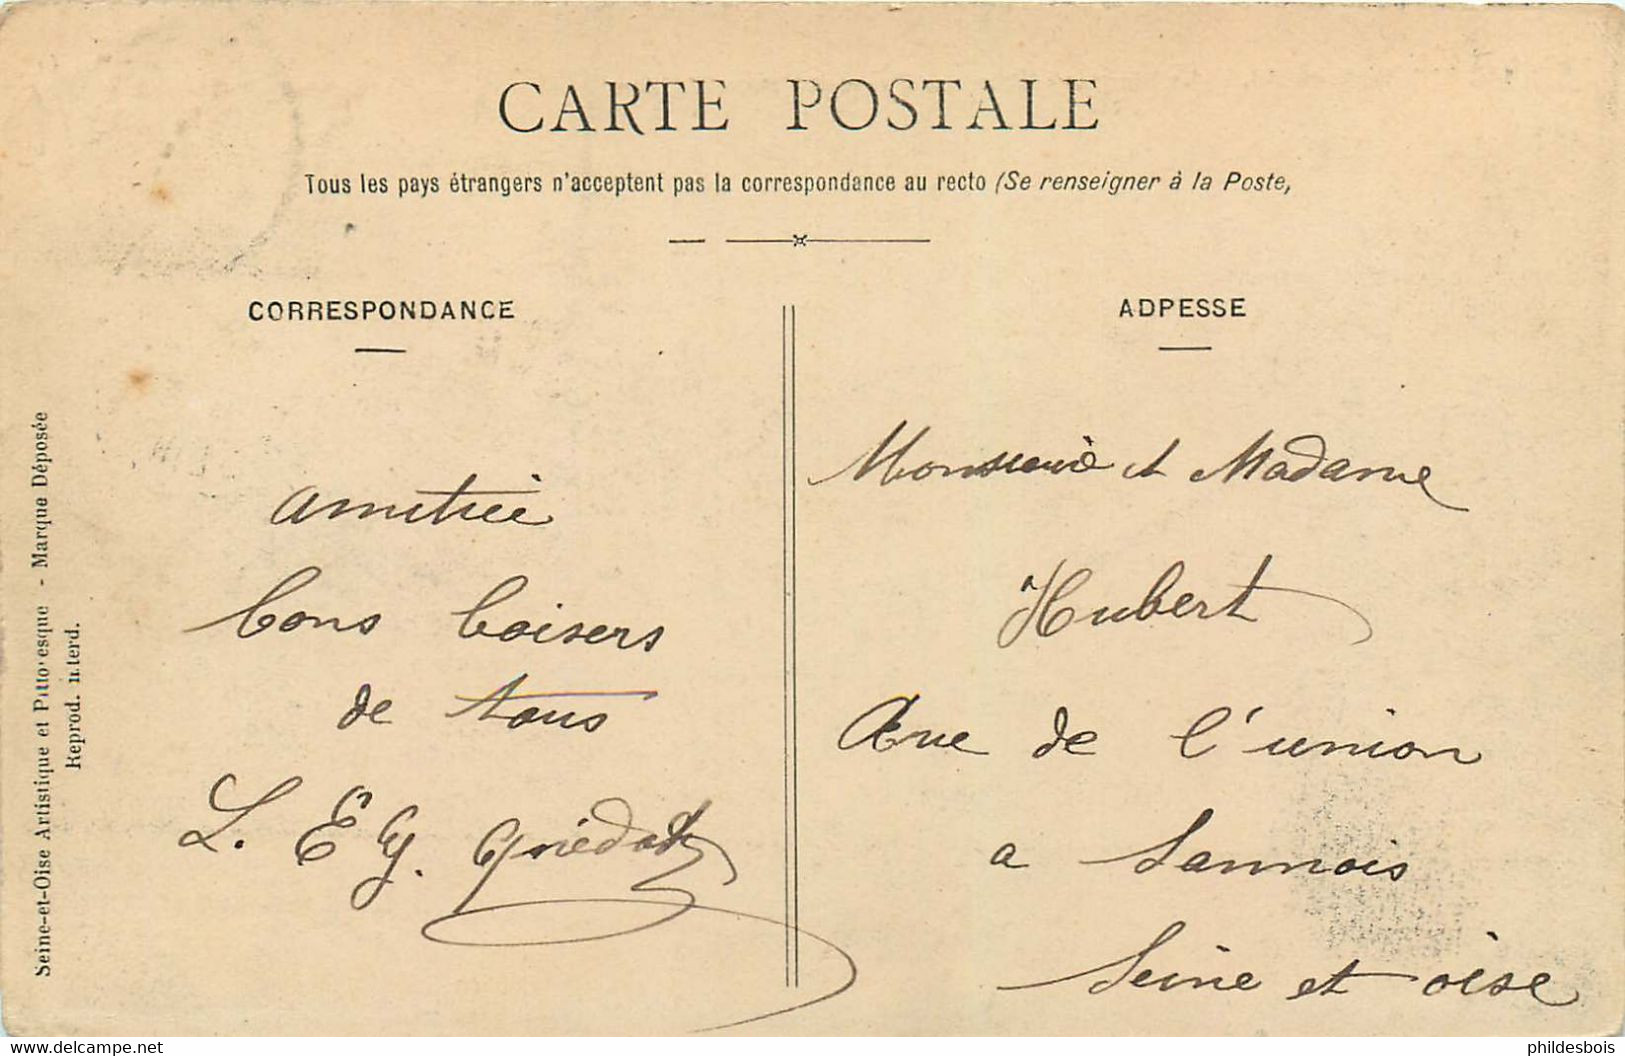 CARTE POSTALE
Tous les pays étrangers n'acceptent pas la correspondance au recto (Se renseigner à la Poste,
CORRESPONDANCE
amitié
bons baisers
de tous
L. E G.
ADPESSE
Monsieur et Madame
Hubert
Rue de l'union
a Sannois
Seine et oise
Seine-et-Oise Artistique et Pittoresque - Marque Déposée
Reprod. interd.
delcampe.net
phildesbois